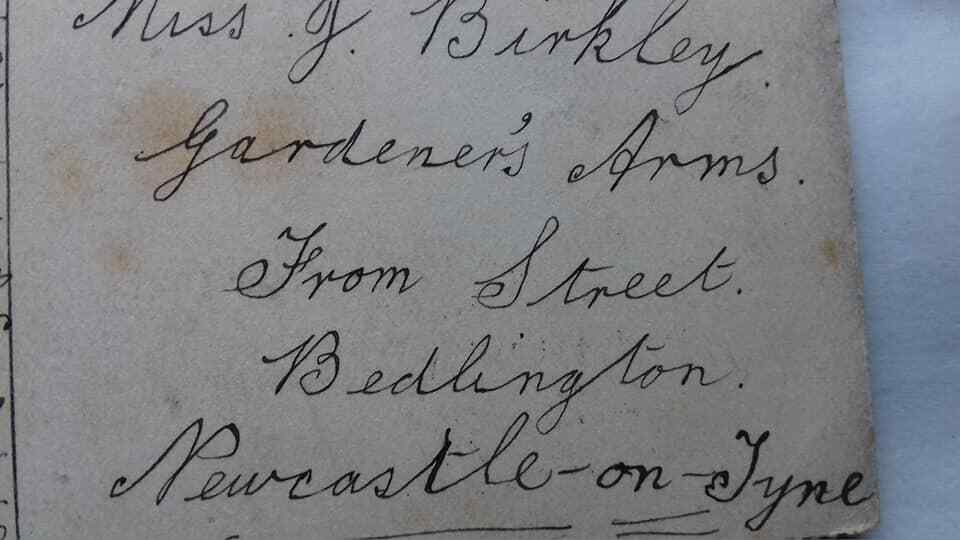 Miss J. Birkley.
Gardener's Arms.
From Street.
Bedlington.
Newcastle-on-Tyne